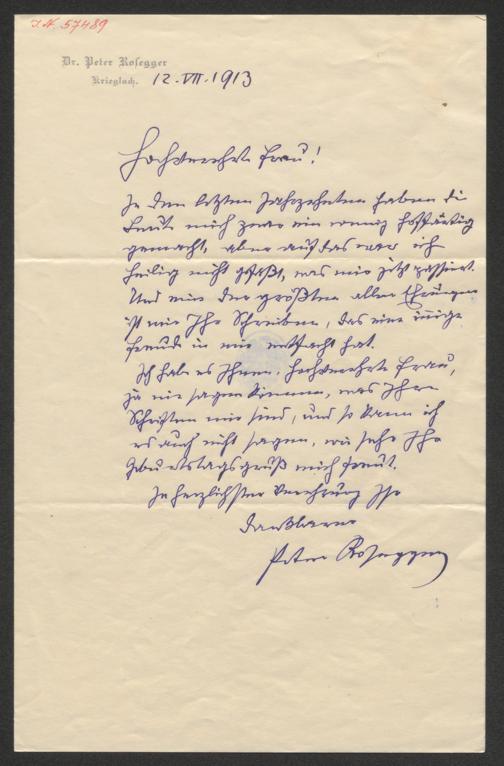 I.N. 57489
Dr. Peter Rosegger
Krieglach. 12.VII.1913
Hochverehrte Frau!
In den letzten Jahrzehnten haben die
Leute mich zwar ein wenig hoffärtig
gemacht, aber auf das war ich
heilig nicht gefaßt, was mir jetzt passiert.
Und eine der größten aller Ehrungen
ist mir Ihr Schreiben, das eine innige
Freude in mir entfacht hat.
Ich habe es Ihnen, hochverehrte Frau,
ja nie sagen können, was Ihre
Schriften mir sind, und so kann ich
es auch nicht sagen, wie sehr Ihr
Geburtstagsgruß mich freut.
In herzlichster Verehrung Ihr
dankbarer
Peter Rosegger